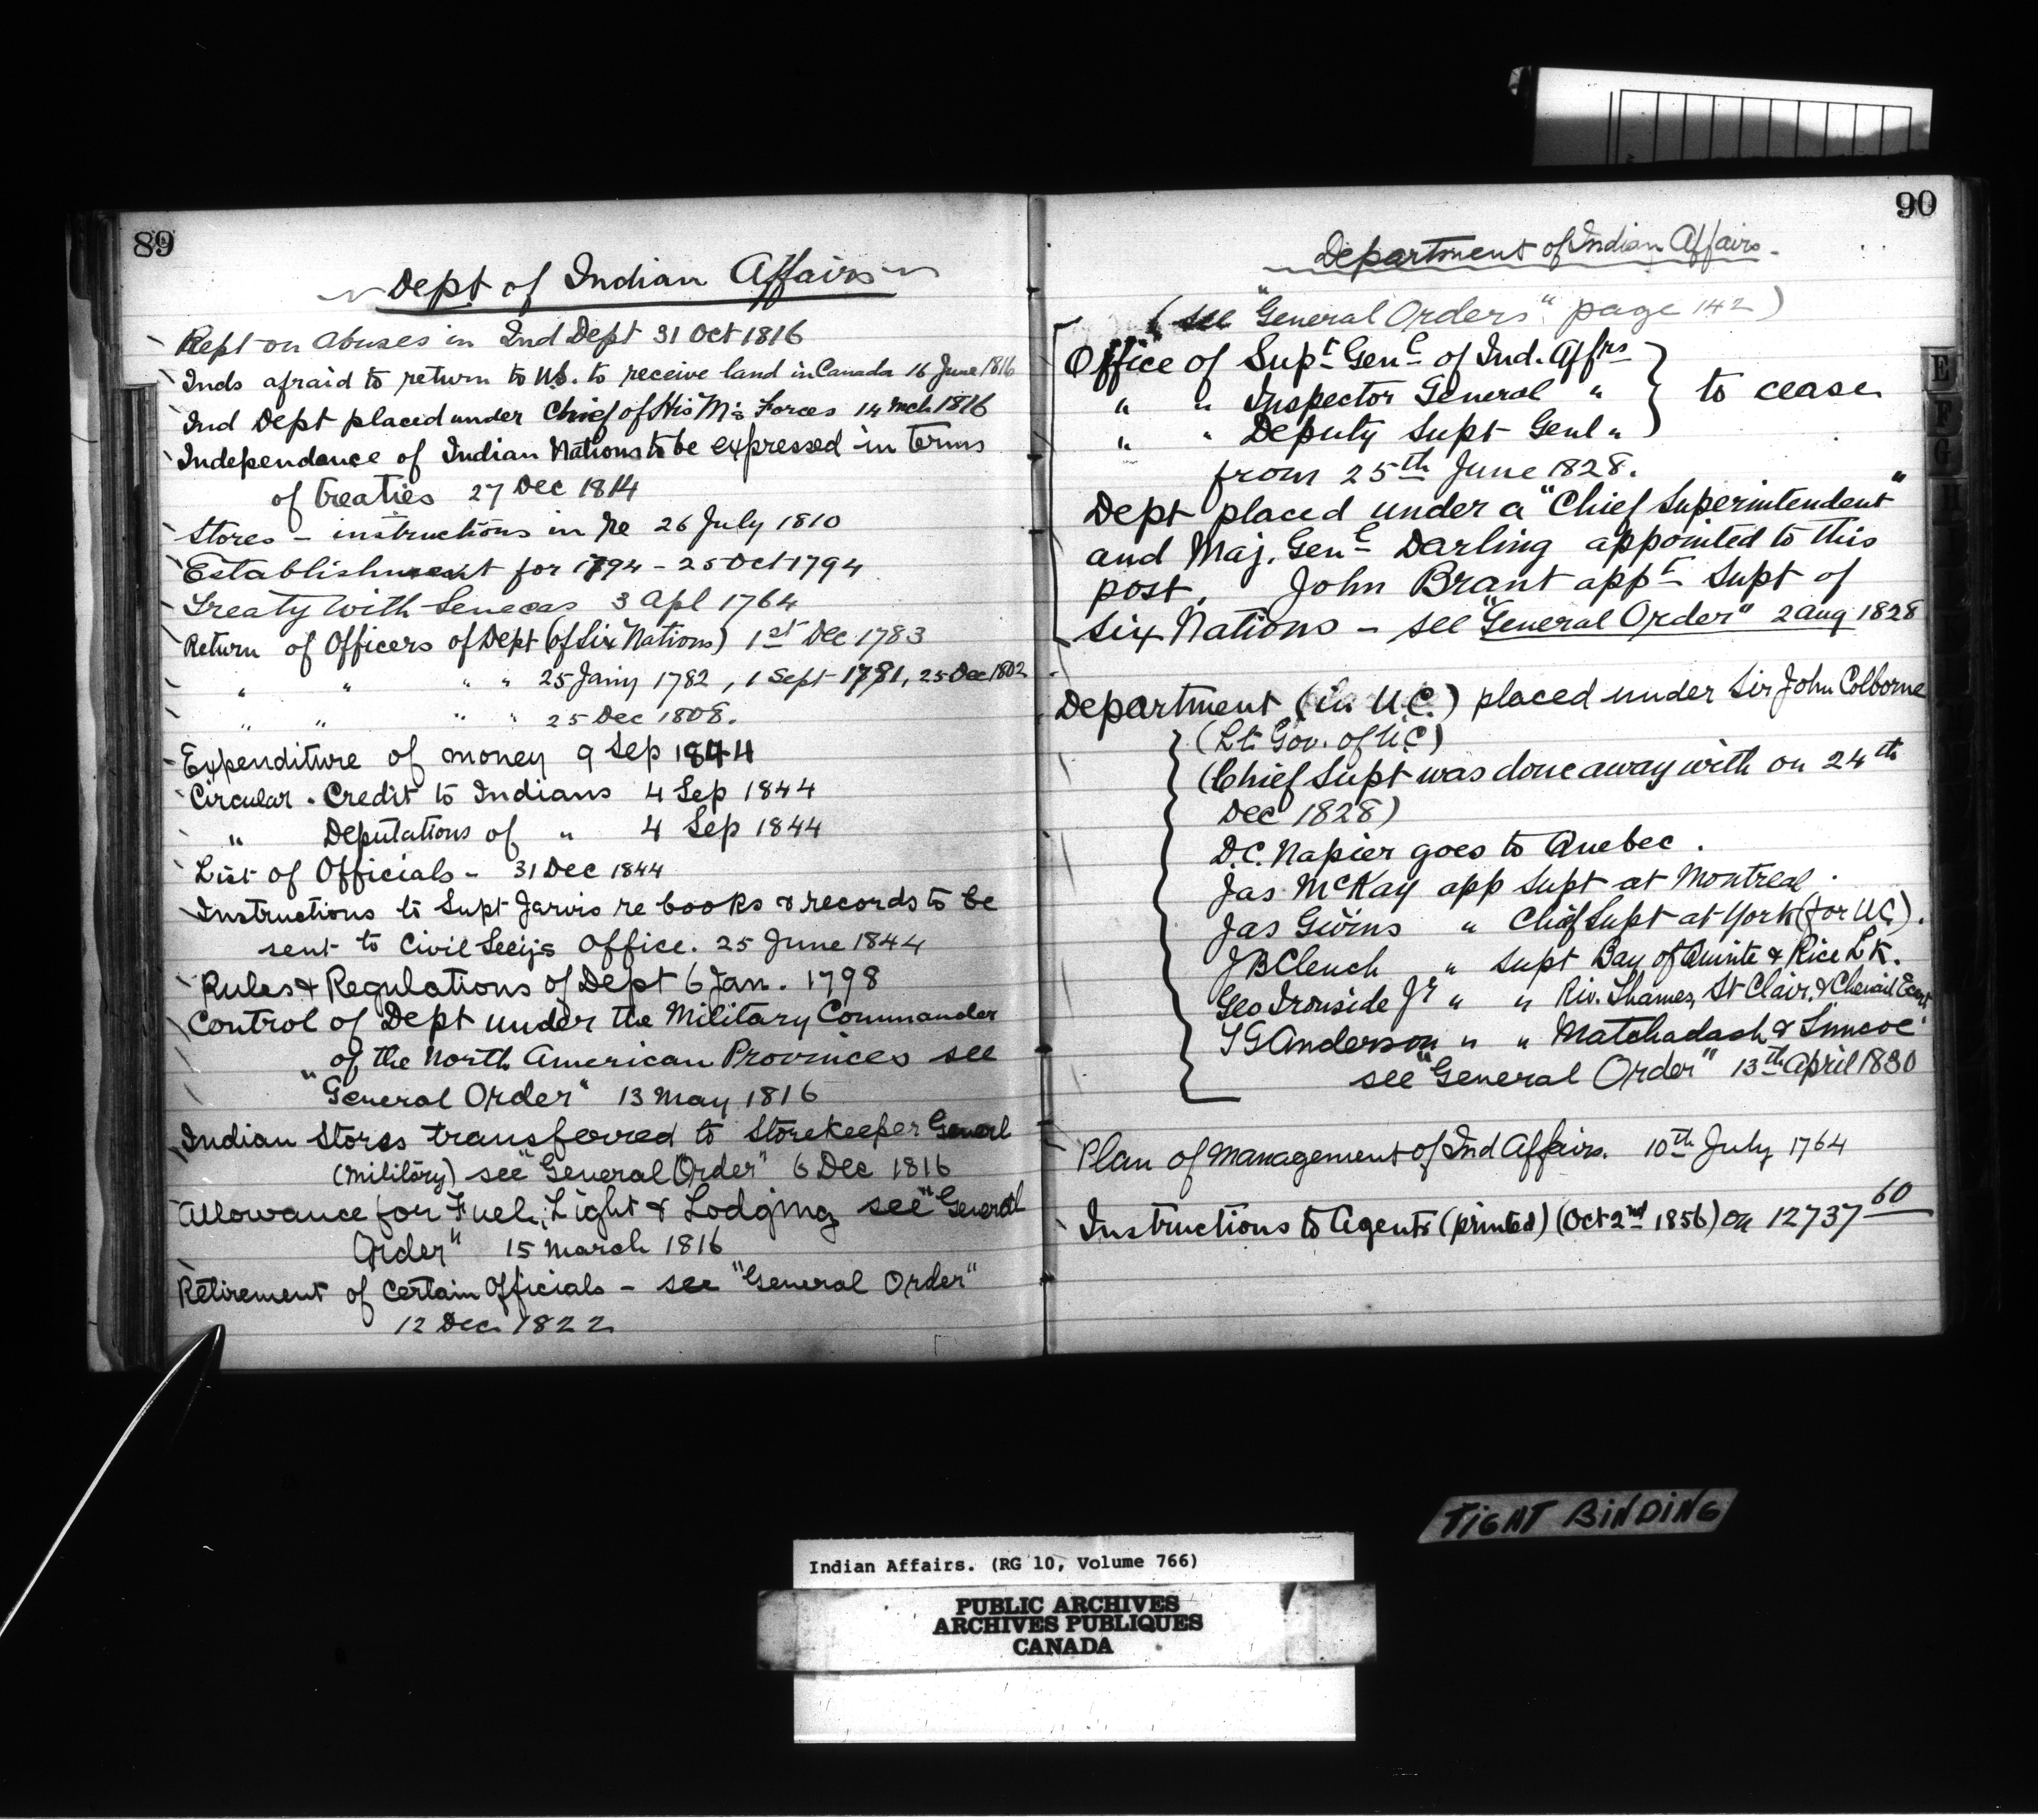 89
Dept of Indian Affairs
Rept on Abuses in Ind Dept 31 Oct 1816
Inds afraid to return to U.S. to receive land in Canada 16 June 1816
Ind Dept placed under Chief of His M's Forces 14 Mch 1816
Independence of Indian Nations to be expressed in terms
of treaties 27 Dec 1814
Stores - instructions in re 26 July 1810
Establishment for 1794 - 25 Oct 1794
Treaty with Senecas 3 Apl 1764
Return of Officers of Dept (of Six Nations) 1st Dec 1783
" " " " 25 Jany 1782, 1 Sept 1781, 25 Dec 1802
" " " " 25 Dec 1808.
Expenditure of money 9 Sep 1844
Circular. Credit to Indians 4 Sep 1844
" Deputations of " 4 Sep 1844
List of Officials - 31 Dec 1844
Instructions to Supt Jarvis re books & records to be
sent to Civil Secy's Office. 25 June 1844
Rules & Regulations of Dept 6 Jan. 1798
Control of Dept under the Military Commander
of the North American Provinces see
"General Order" 13 May 1816
Indian Stores transferred to Storekeeper General
(Military) see "General Order" 6 Dec 1816
Allowance for Fuel, Light & Lodging see "General
Order" 15 March 1816
Retirement of Certain Officials - see "General Order"
12 Dec. 1822
90
Department of Indian Affairs.
(see "General Orders" page 142)
Office of Supt Genl of Ind. Affrs
" " Inspector General " } to cease
" " Deputy Supt Genl "
from 25th June 1828.
Dept placed under a "Chief Superintendent"
and Maj. Genl Darling appointed to this
post. John Brant appt Supt of
Six Nations - see "General Order" 2 Aug 1828
Department (in U.C.) placed under Sir John Colborne
(Lt. Gov. of U.C)
(Chief Supt was done away with on 24th
Dec 1828)
D.C. Napier goes to Quebec.
Jas McKay app Supt at Montreal.
Jas Givins " Chief Supt at York (for U.C).
JB Clench " Supt Bay of Quinte & Rice Lk.
Geo Ironside Jr " " Riv. Thames, St Clair, & Chenail Ecart
TG Anderson " " Matchadash & Simcoe
see "General Order" 13th April 1830
Plan of Management of Ind Affairs. 10th July 1764
Instructions to Agents (printed) (Oct 2nd 1856) on 12737 60
E
F
G
H
TIGHT BINDING
Indian Affairs. (RG 10, Volume 766)
PUBLIC ARCHIVES
ARCHIVES PUBLIQUES
CANADA